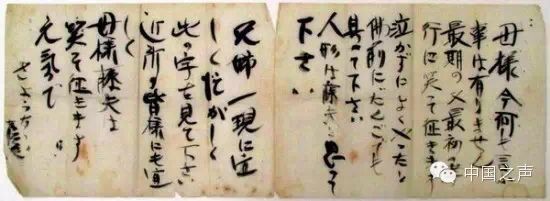 母様今何も言ふ
事は有りません
最期の又最初の
行に笑って征きます
泣かずによくやったと
佛前にだんごでも
具へて下さい
人形は藤夫と思って
下さい
兄姉一現に宜
しく忙がしく
此の字を見て下さい
近所の皆様にも宜
しく
母様藤夫は
笑って征きます
元気で
さようなら
中国之声